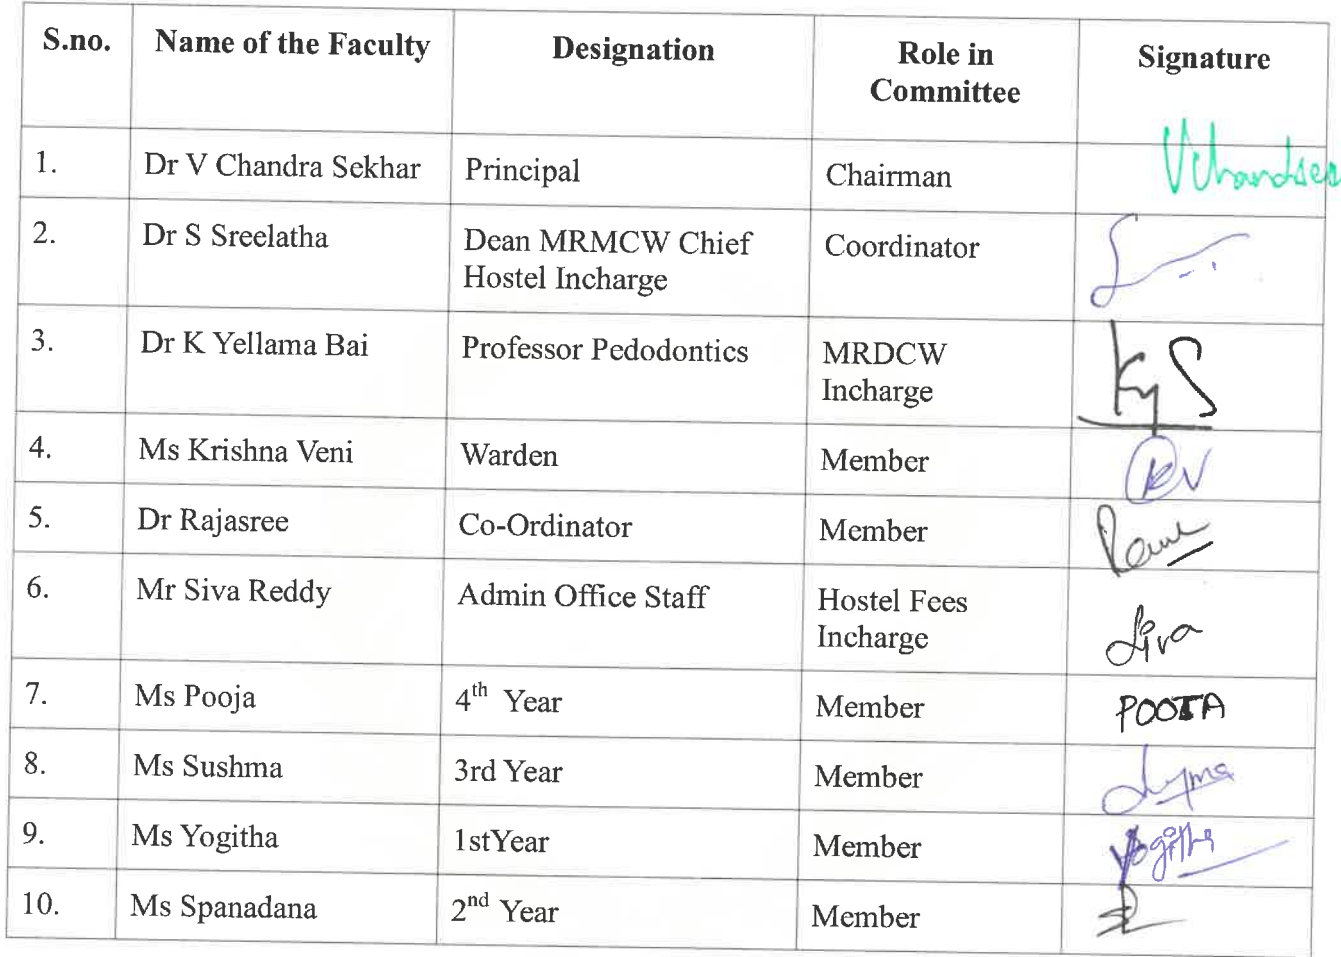 S.no. Name of the Faculty Designation Role in Committee Signature
1. Dr V Chandra Sekhar Principal Chairman
2. Dr S Sreelatha Dean MRMCW Chief Hostel Incharge Coordinator
3. Dr K Yellama Bai Professor Pedodontics MRDCW Incharge
4. Ms Krishna Veni Warden Member KV
5. Dr Rajasree Co-Ordinator Member
6. Mr Siva Reddy Admin Office Staff Hostel Fees Incharge Siva
7. Ms Pooja 4th Year Member POOJA
8. Ms Sushma 3rd Year Member
9. Ms Yogitha 1stYear Member Yogitha
10. Ms Spanadana 2nd Year Member